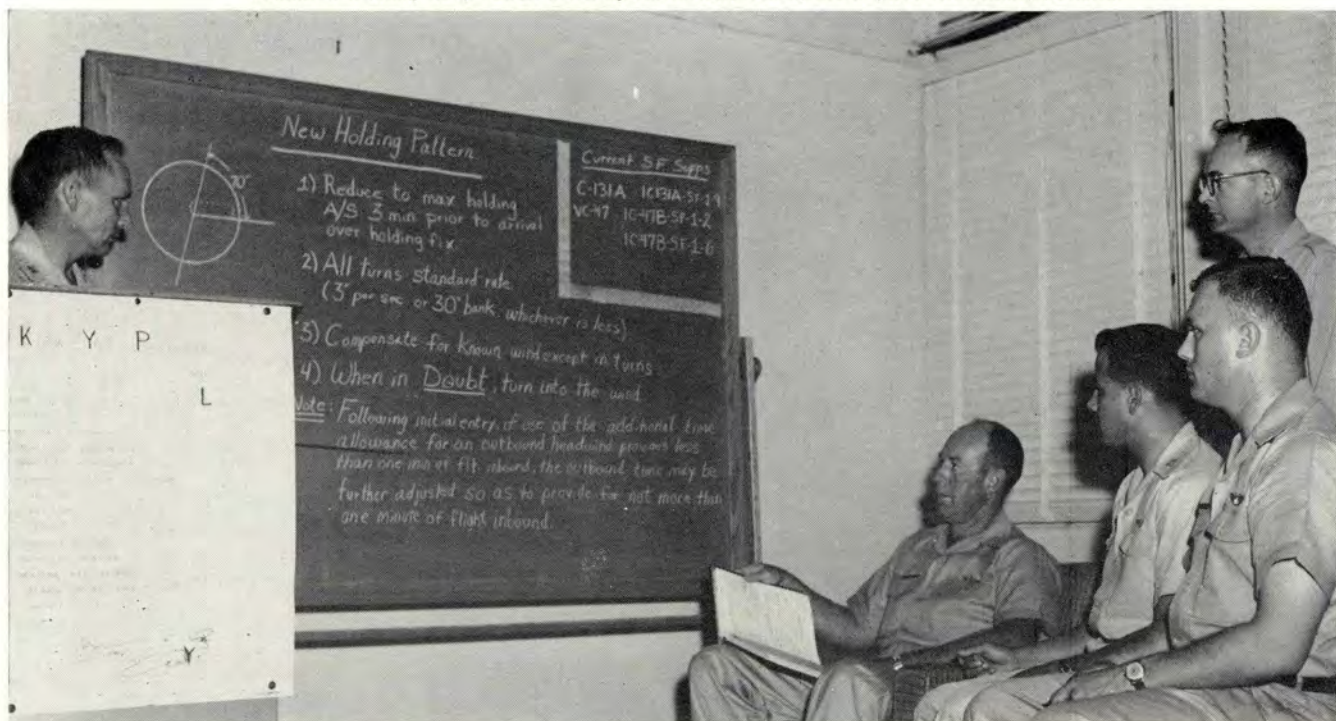 New Holding Pattern
70°
1) Reduce to max holding
A/S 3 min prior to arrival
over holding fix
2) All turns standard rate
(3° per sec. or 30° bank, whichever is less)
3) Compensate for known wind except in turns
4) When in Doubt, turn into the wind
Note: Following initial entry, if use of the additional time
allowance for an outbound headwind provides less
than one min of flt inbound, the outbound time may be
further adjusted so as to provide for not more than
one minute of flight inbound.
Current S.F. Supps
C-131A 1C131A-SF-1-9
VC-47 1C-47B-SF-1-2
1C-47B-SF-1-6
K Y P
L
Y